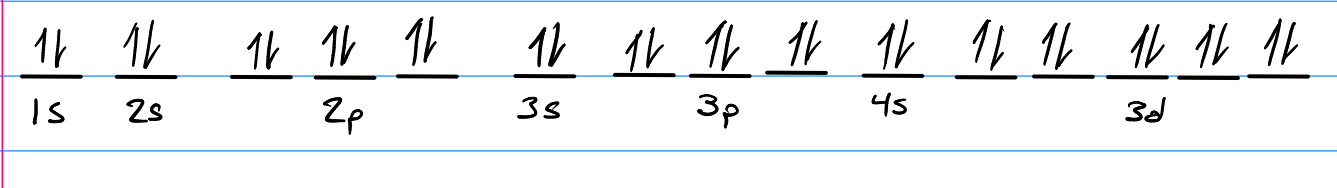 1s 2s 2p 3s 3p 4s 3d